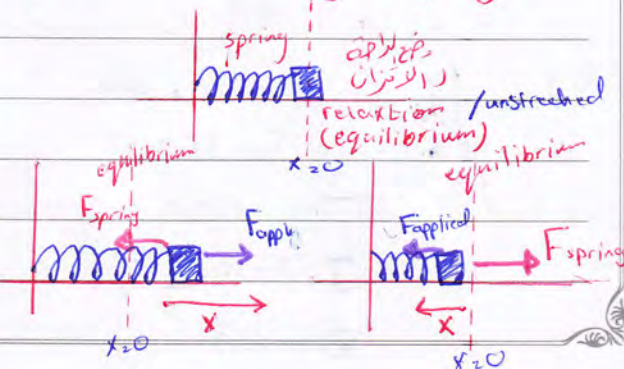 spring
وضع الراحة
(الاتزان
relaxtion /unstreched
(equilibrium)
x=0
equilibrium
equilibrium
Fspring
Fappl.
Fapplied
Fspring
x
x
x=0
x=0